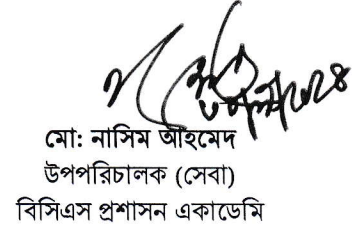 মো: নাসিম আহমেদ
উপপরিচালক (সেবা)
বিসিএস প্রশাসন একাডেমি